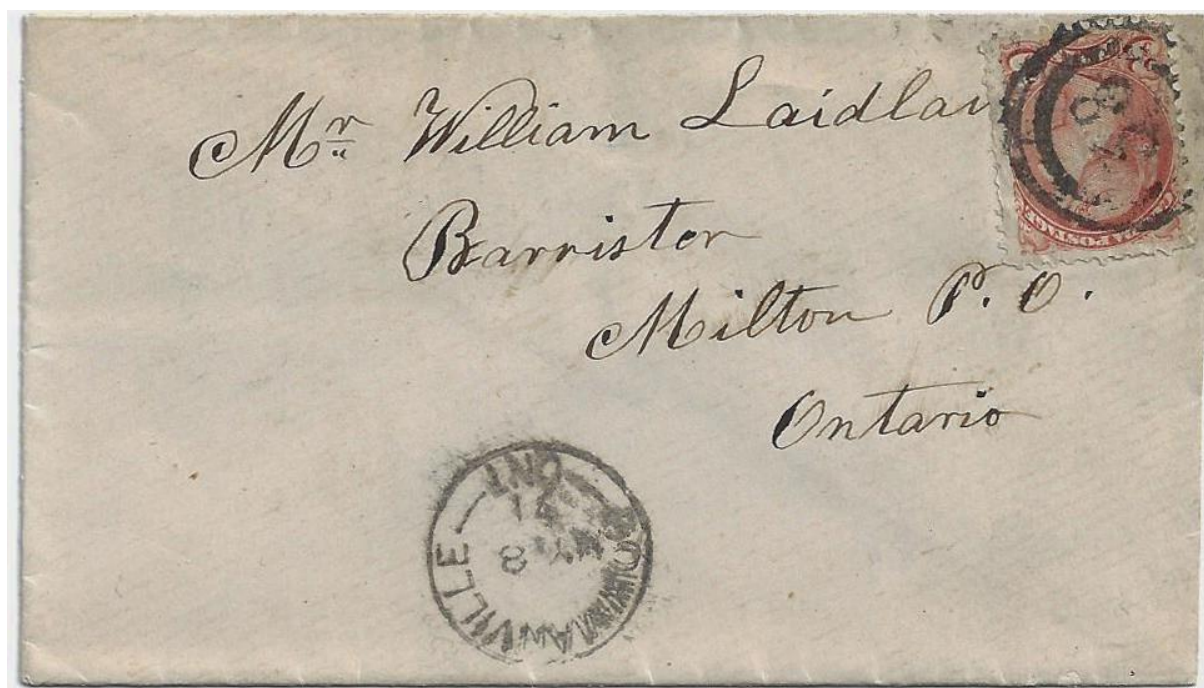 Mr William Laidlaw
Barrister
Milton P. O.
Ontario
BOWMANVILLE
ONT
MY 8
POSTAGE